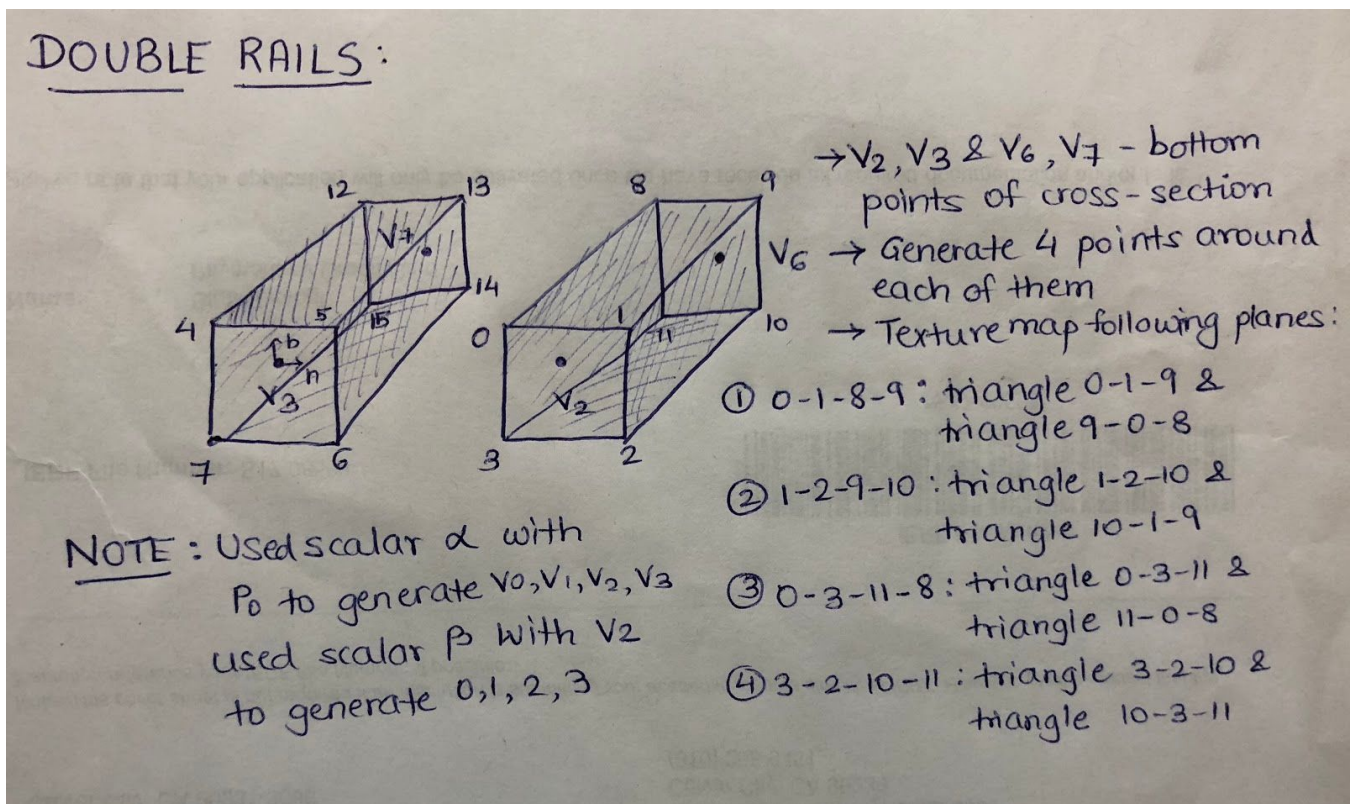 DOUBLE RAILS:
12 13
V7
14
4 5 15
b
n
V3
7 6
8 9
V6
0 1 11 10
V2
3 2
→ V2, V3 & V6, V7 - bottom
points of cross-section
→ Generate 4 points around
each of them
→ Texture map following planes:
① 0-1-8-9: triangle 0-1-9 &
triangle 9-0-8
② 1-2-9-10: triangle 1-2-10 &
triangle 10-1-9
③ 0-3-11-8: triangle 0-3-11 &
triangle 11-0-8
④ 3-2-10-11: triangle 3-2-10 &
triangle 10-3-11
NOTE: Used scalar α with
P0 to generate V0, V1, V2, V3
used scalar β with V2
to generate 0,1,2,3